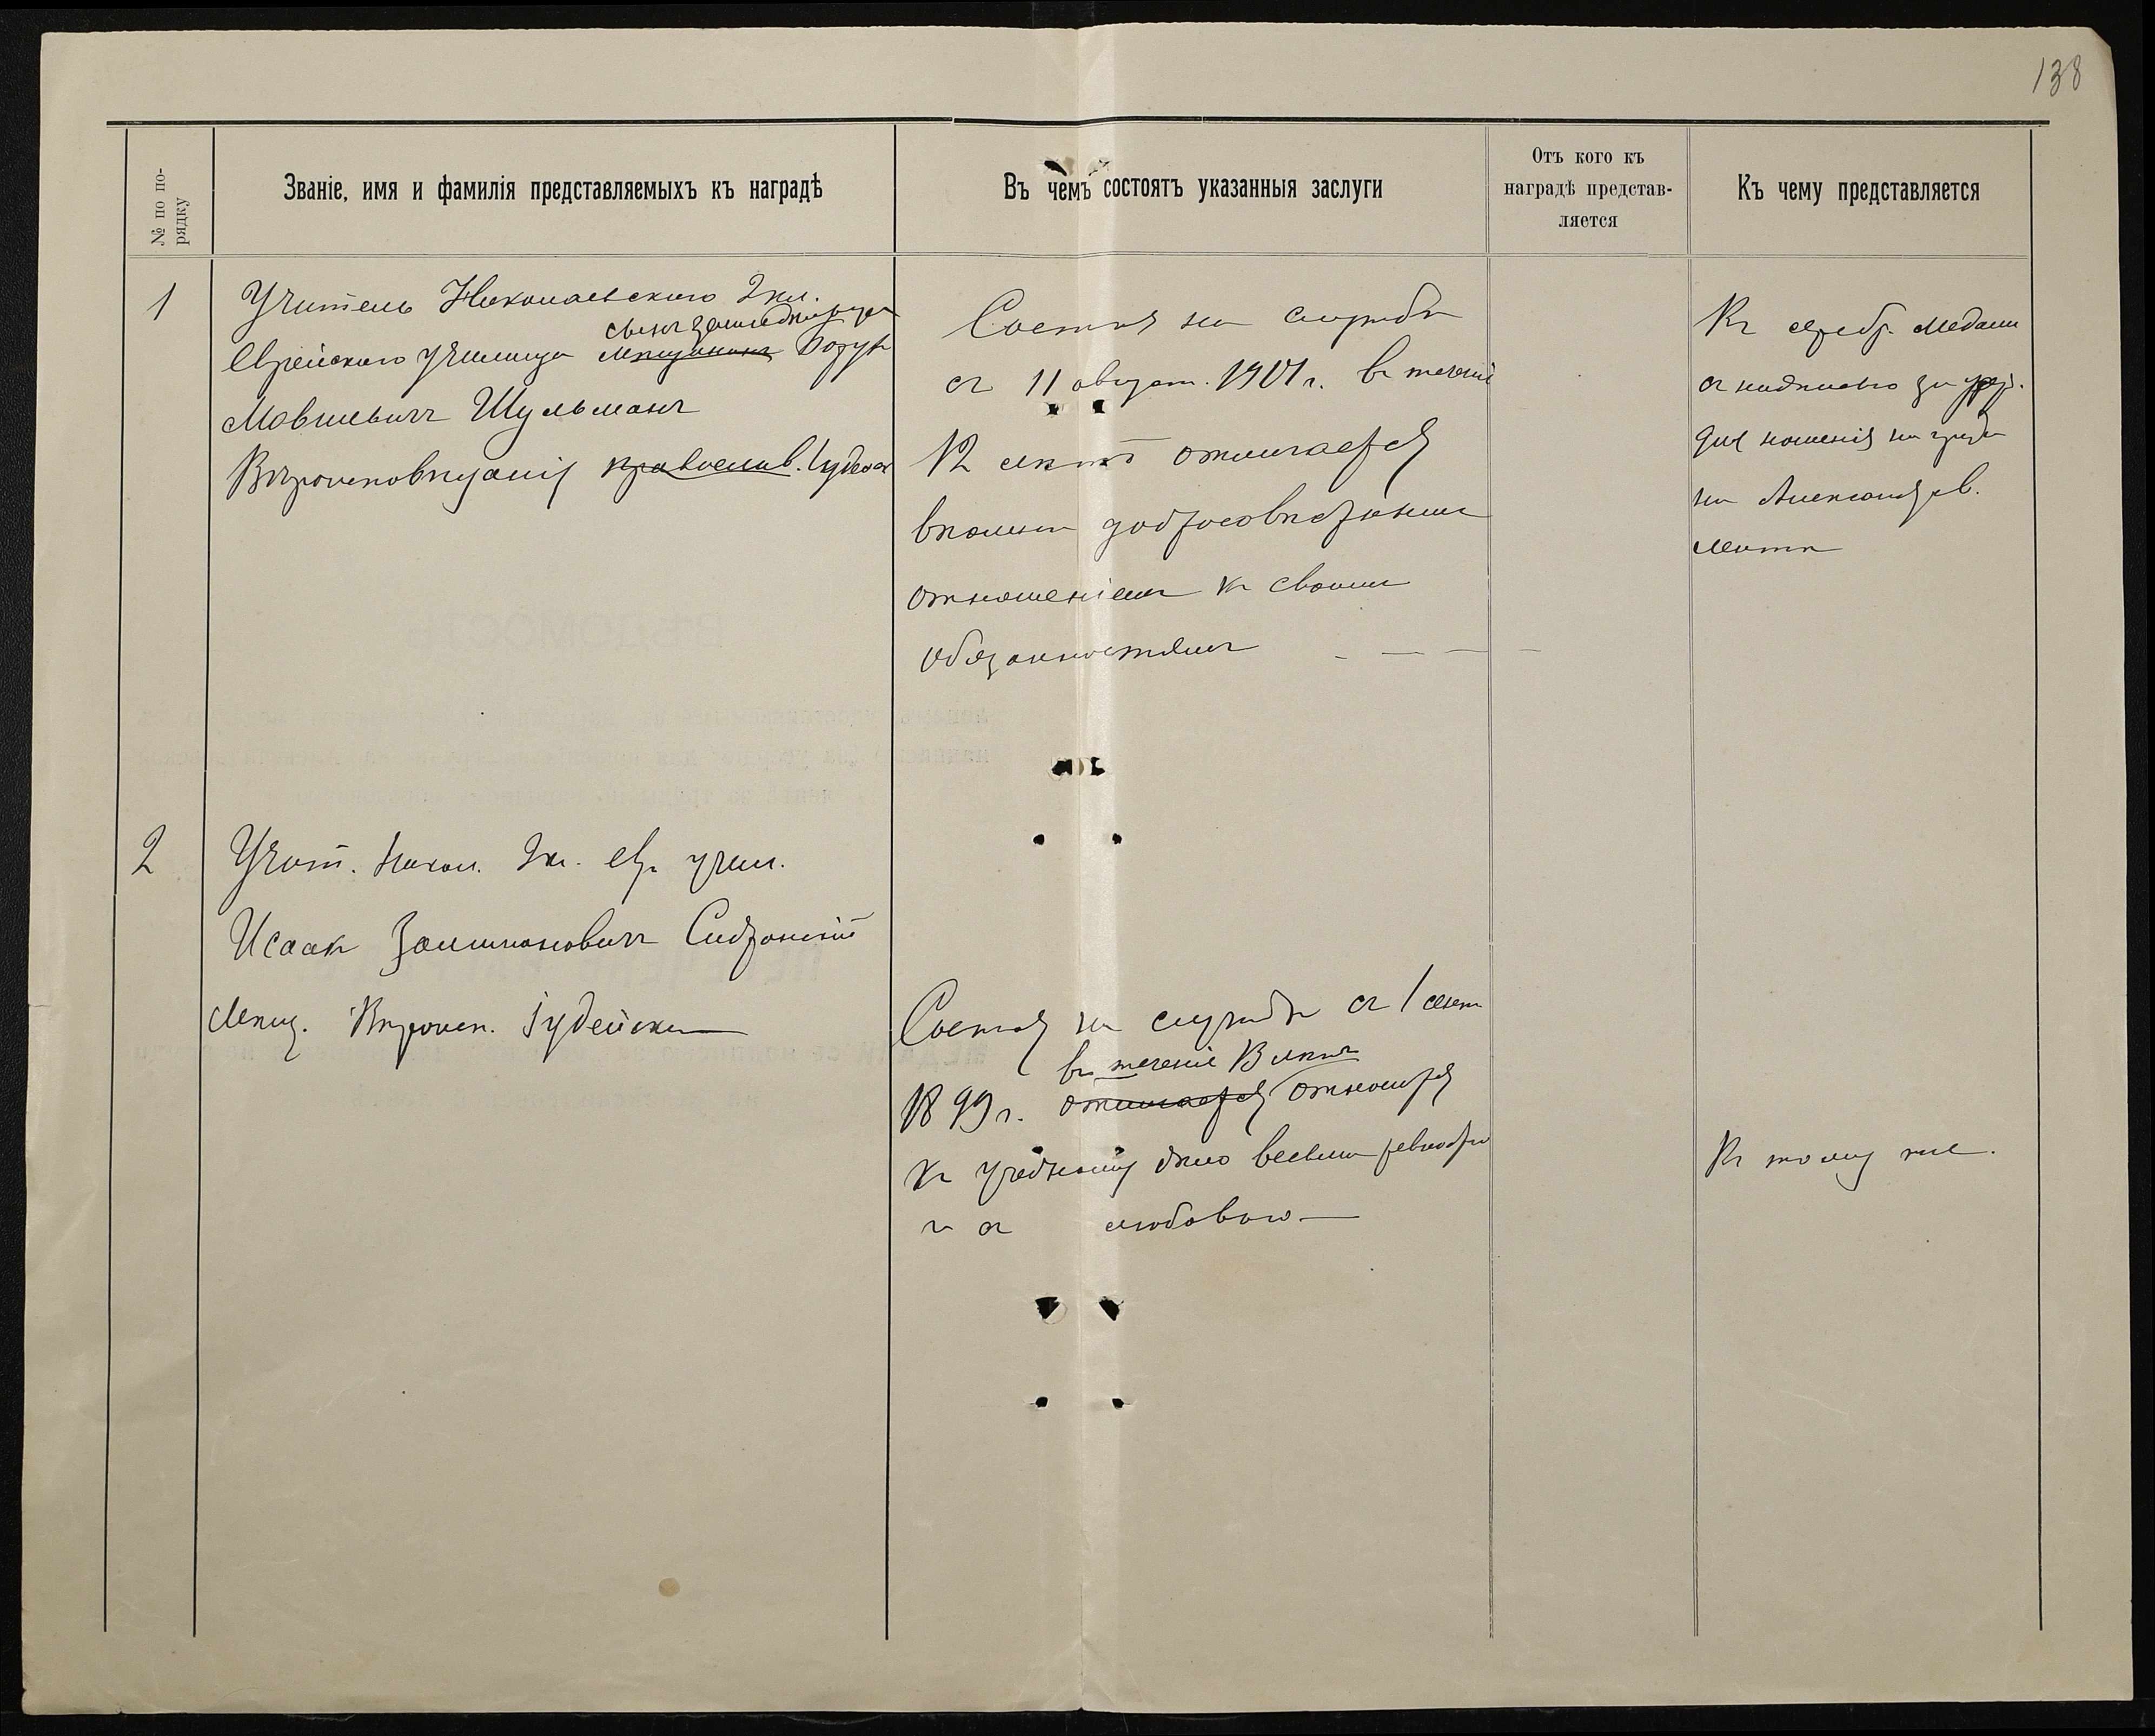 138
№ по по-
рядку
Званіе, имя и фамилія представляемыхъ къ наградѣ
Въ чемъ состоятъ указанныя заслуги
Отъ кого къ
наградѣ представ-
ляется
Къ чему представляется
1
Учитель Николаевскаго 2кл.
сынъ
Еврейскаго училища мѣщанинъ Борухъ
Мовшевичъ Шульманъ
Вѣроисповѣданія православ. Іудейск
Состоя на службѣ
съ 11 август. 1901 г. въ теченіе
12 лѣтъ отличается
вполнѣ добросовѣстнымъ
отношеніемъ къ своимъ
обязанностямъ
Къ серебр. медали
съ надписью за усер.
для ношенія на груди
на Александров.
лентѣ
2
Учит. Никол. 2кл. евр. учил.
Исаак Залмановичъ
Мѣщ. Вѣроисп. Іудейскаго
Состоя на службѣ съ 1 сент
въ теченіе 13 лѣтъ
1899 г. отличается относится
къ учебному дѣлу весьма ревностно
и съ любовью
Къ тому же.